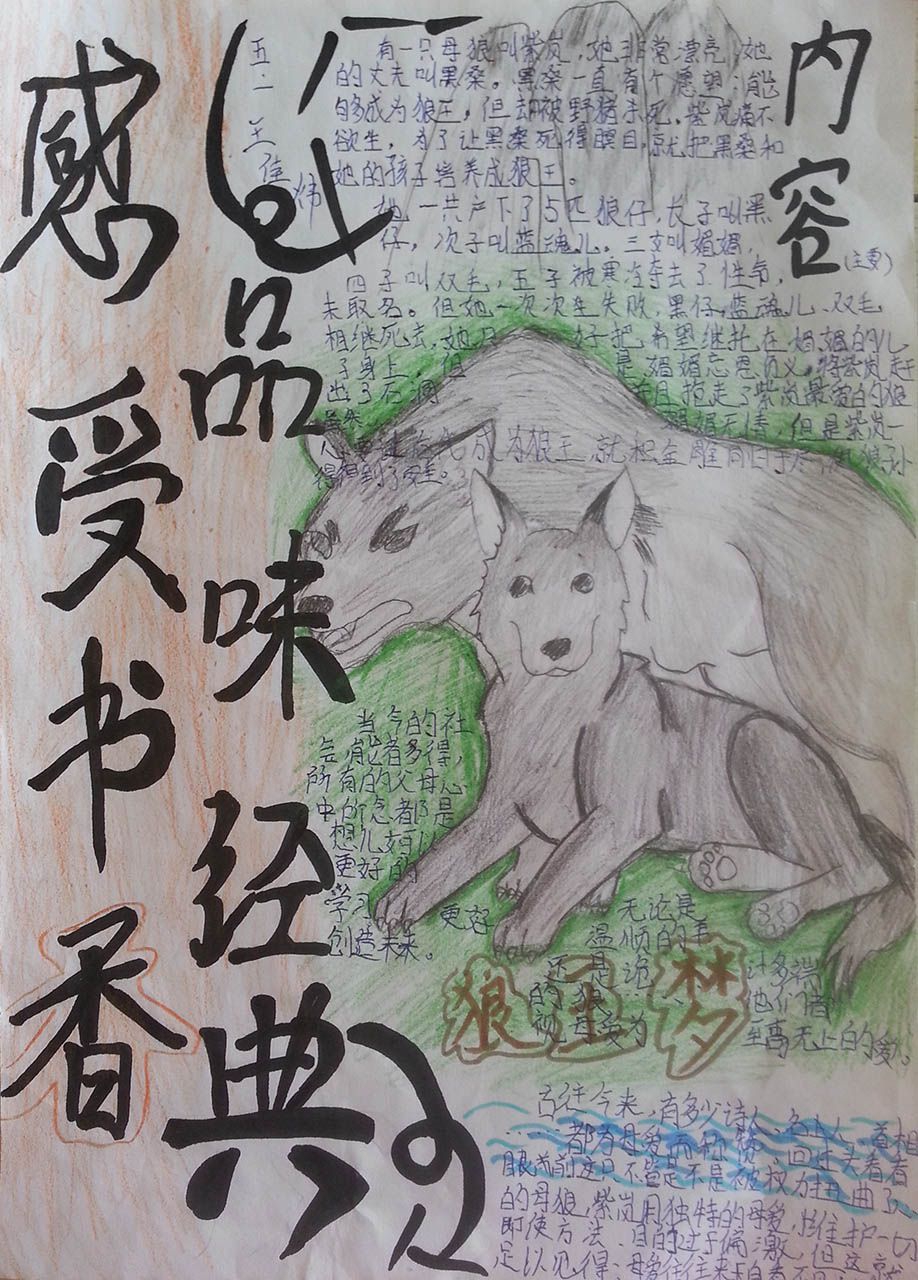 品味经典
感受书香
内容
(主要)
五二
王佳炜
有一只母狼叫紫岚,她非常漂亮,她
的丈夫叫黑桑。黑桑一直有个愿望:能
够成为狼王,但却被野猪杀死,紫岚痛不
欲生,为了让黑桑死得瞑目,就把黑桑和
她的孩子培养成狼王。
她一共产下了5匹狼仔,长子叫黑
仔,次子叫蓝魂儿,三女叫媚媚,
四子叫双毛,五子被寒冷夺去了性命,
未取名。但她一次次失败,黑仔,蓝魂儿、双毛
相继死去,她只好把希望继托在媚媚的儿
子身上,但是媚媚忘恩负义,将紫岚赶
出了石洞
抱走了紫岚最爱的狼
但是紫岚一
成为狼王,就和金雕同归于尽,狼孙
得到了安全。
当今的社
会,能者多得,
所有的父母心
中的信念都是
想儿女们
更好的
学习 更好
创造未来。
无论是
温顺的羊
还是诡计多端
的狼 他们都
视母爱为至高无上的爱。
狼王梦
古往今来,有多少诗人、名人、首相
……都为母爱而称赞,回过头看看
眼前这只不管是不是被权力扭曲了
的母狼,紫岚用独特的母爱,维护一切
即使方法、目的过于偏激,但这就
足以见得,母爱往往